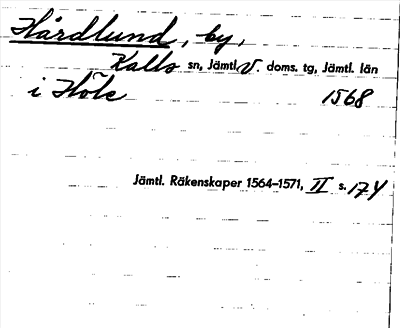 Hårdlund, by,
Kalls sn, Jämtl. V. doms. tg, Jämtl. län
i Höle 1568
Jämtl. Räkenskaper 1564–1571, II s. 174